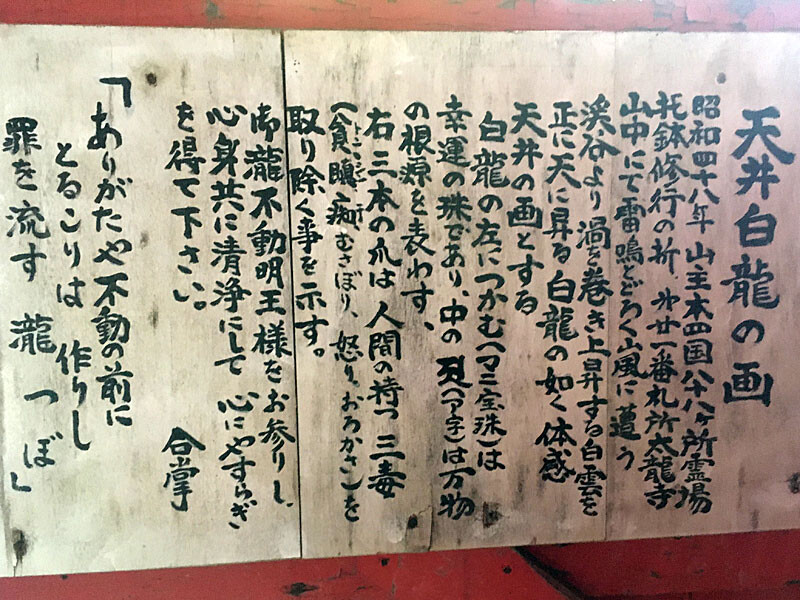 天井白龍の画
昭和四十八年 山主本四国八十八ヶ所霊場
托鉢修行の折、才廿一番札所太龍寺
山中にて雷鳴とどろく山風に遭う
渓谷より渦を巻き上昇する白雲を
正に天に昇る白龍の如く体感
天井の画とする
白龍の左につかむ(マニ宝珠)は
幸運の珠であり、中の (ア字)は万物
の根源を表わす、
右三本の爪は人間の持つ三毒
(貪瞋痴、むさぼり、怒り、おろかさ)を
トンジンチ
取り除く事を示す。
御瀧不動明王様をお参りし、
心身共に清浄にして 心にやすらぎ
を得て下さい。 合掌
「ありがたや不動の前に
とるこりは 作りし
罪を流す 瀧つぼ」